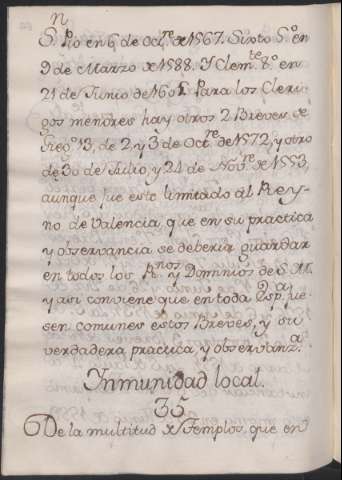 n
S. Pio en 6 de Oct.re de 1567. Sixto 5.o en
9 de Marzo de 1588. Y Clem.te 8.o en
21 de Junio de 1601. Para los Cleri-
gos menores hay otros 2 Breves de
Greg.o 13, de 2, y 3 de Oct.re de 1572, y otro
de 30 de Julio, y 24 de Nov.re de 1553,
aunque fue este limitado al Rey-
no de Valencia, que en su practica
y observancia se deberia guardar
en todos los R.nos y Dominios de S. M.
y asi conviene que en toda Esp.a fue-
sen comunes estos Breves, y su
verdadera practica, y observanz.a
Ynmunidad local.
35
De la multitud de Templos, que en